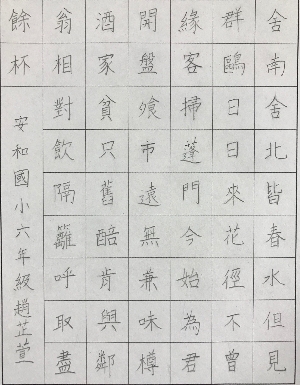 舍南舍北皆春水但見
群鷗日日來花徑不曾
緣客掃蓬門今始為君
開盤飧市遠無兼味樽
酒家貧只舊醅肯與鄰
翁相對飲隔籬呼取盡
餘杯
安和國小六年級趙芷萱